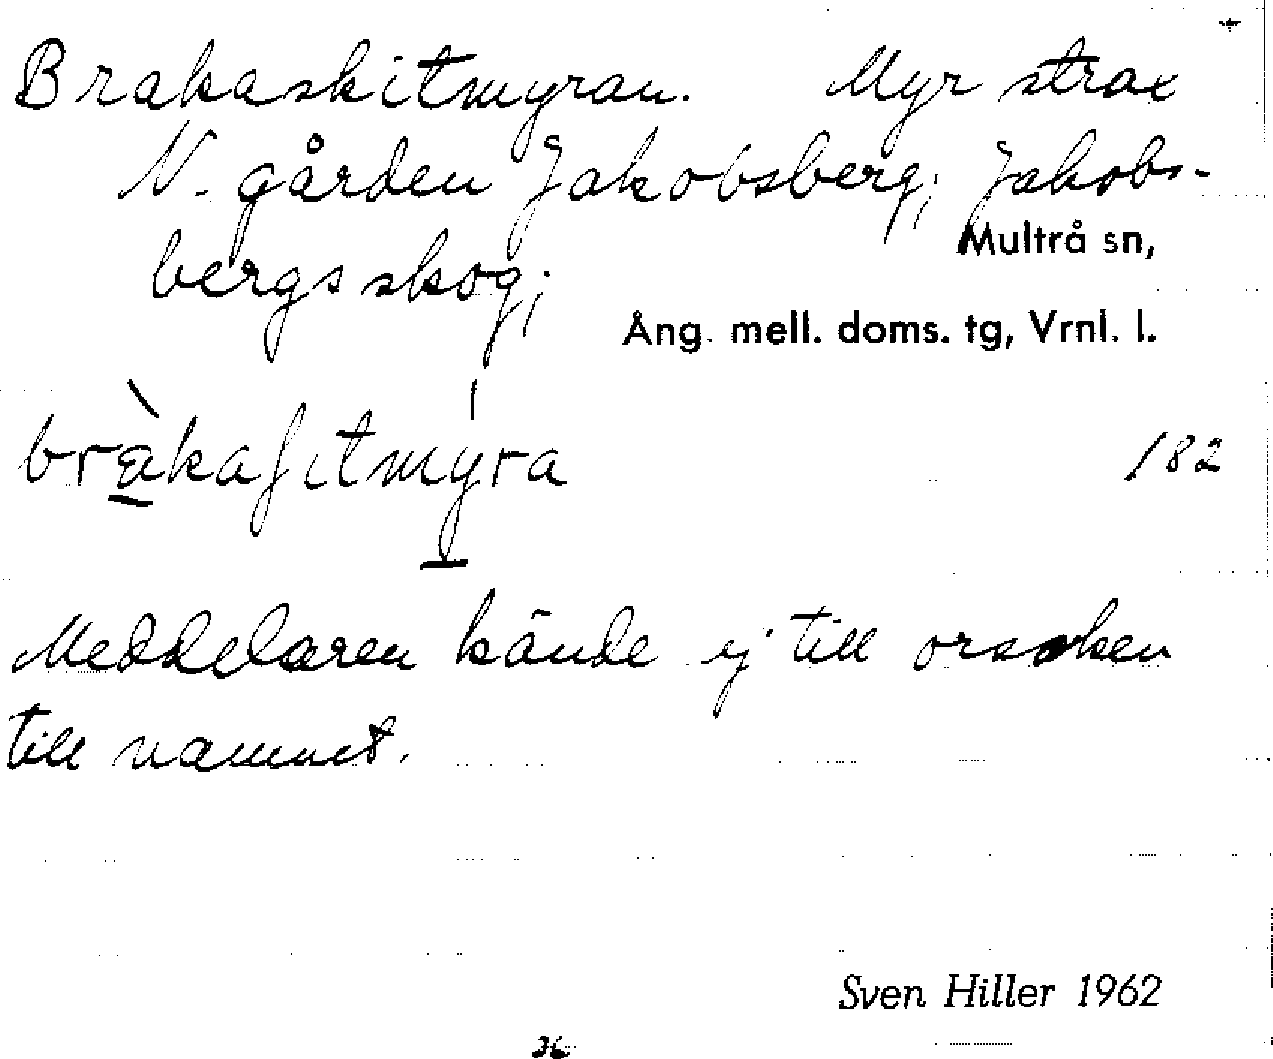 Brakaskitmyran. Myr strax
N. gården Jakobsberg; Jakobs-
bergsskog;
Multrå sn,
Ång. mell. doms. tg, Vrnl. l.
bràkaʃitmýra 182
Meddelaren kände ej till orsaken
till namnet.
Sven Hiller 1962
36